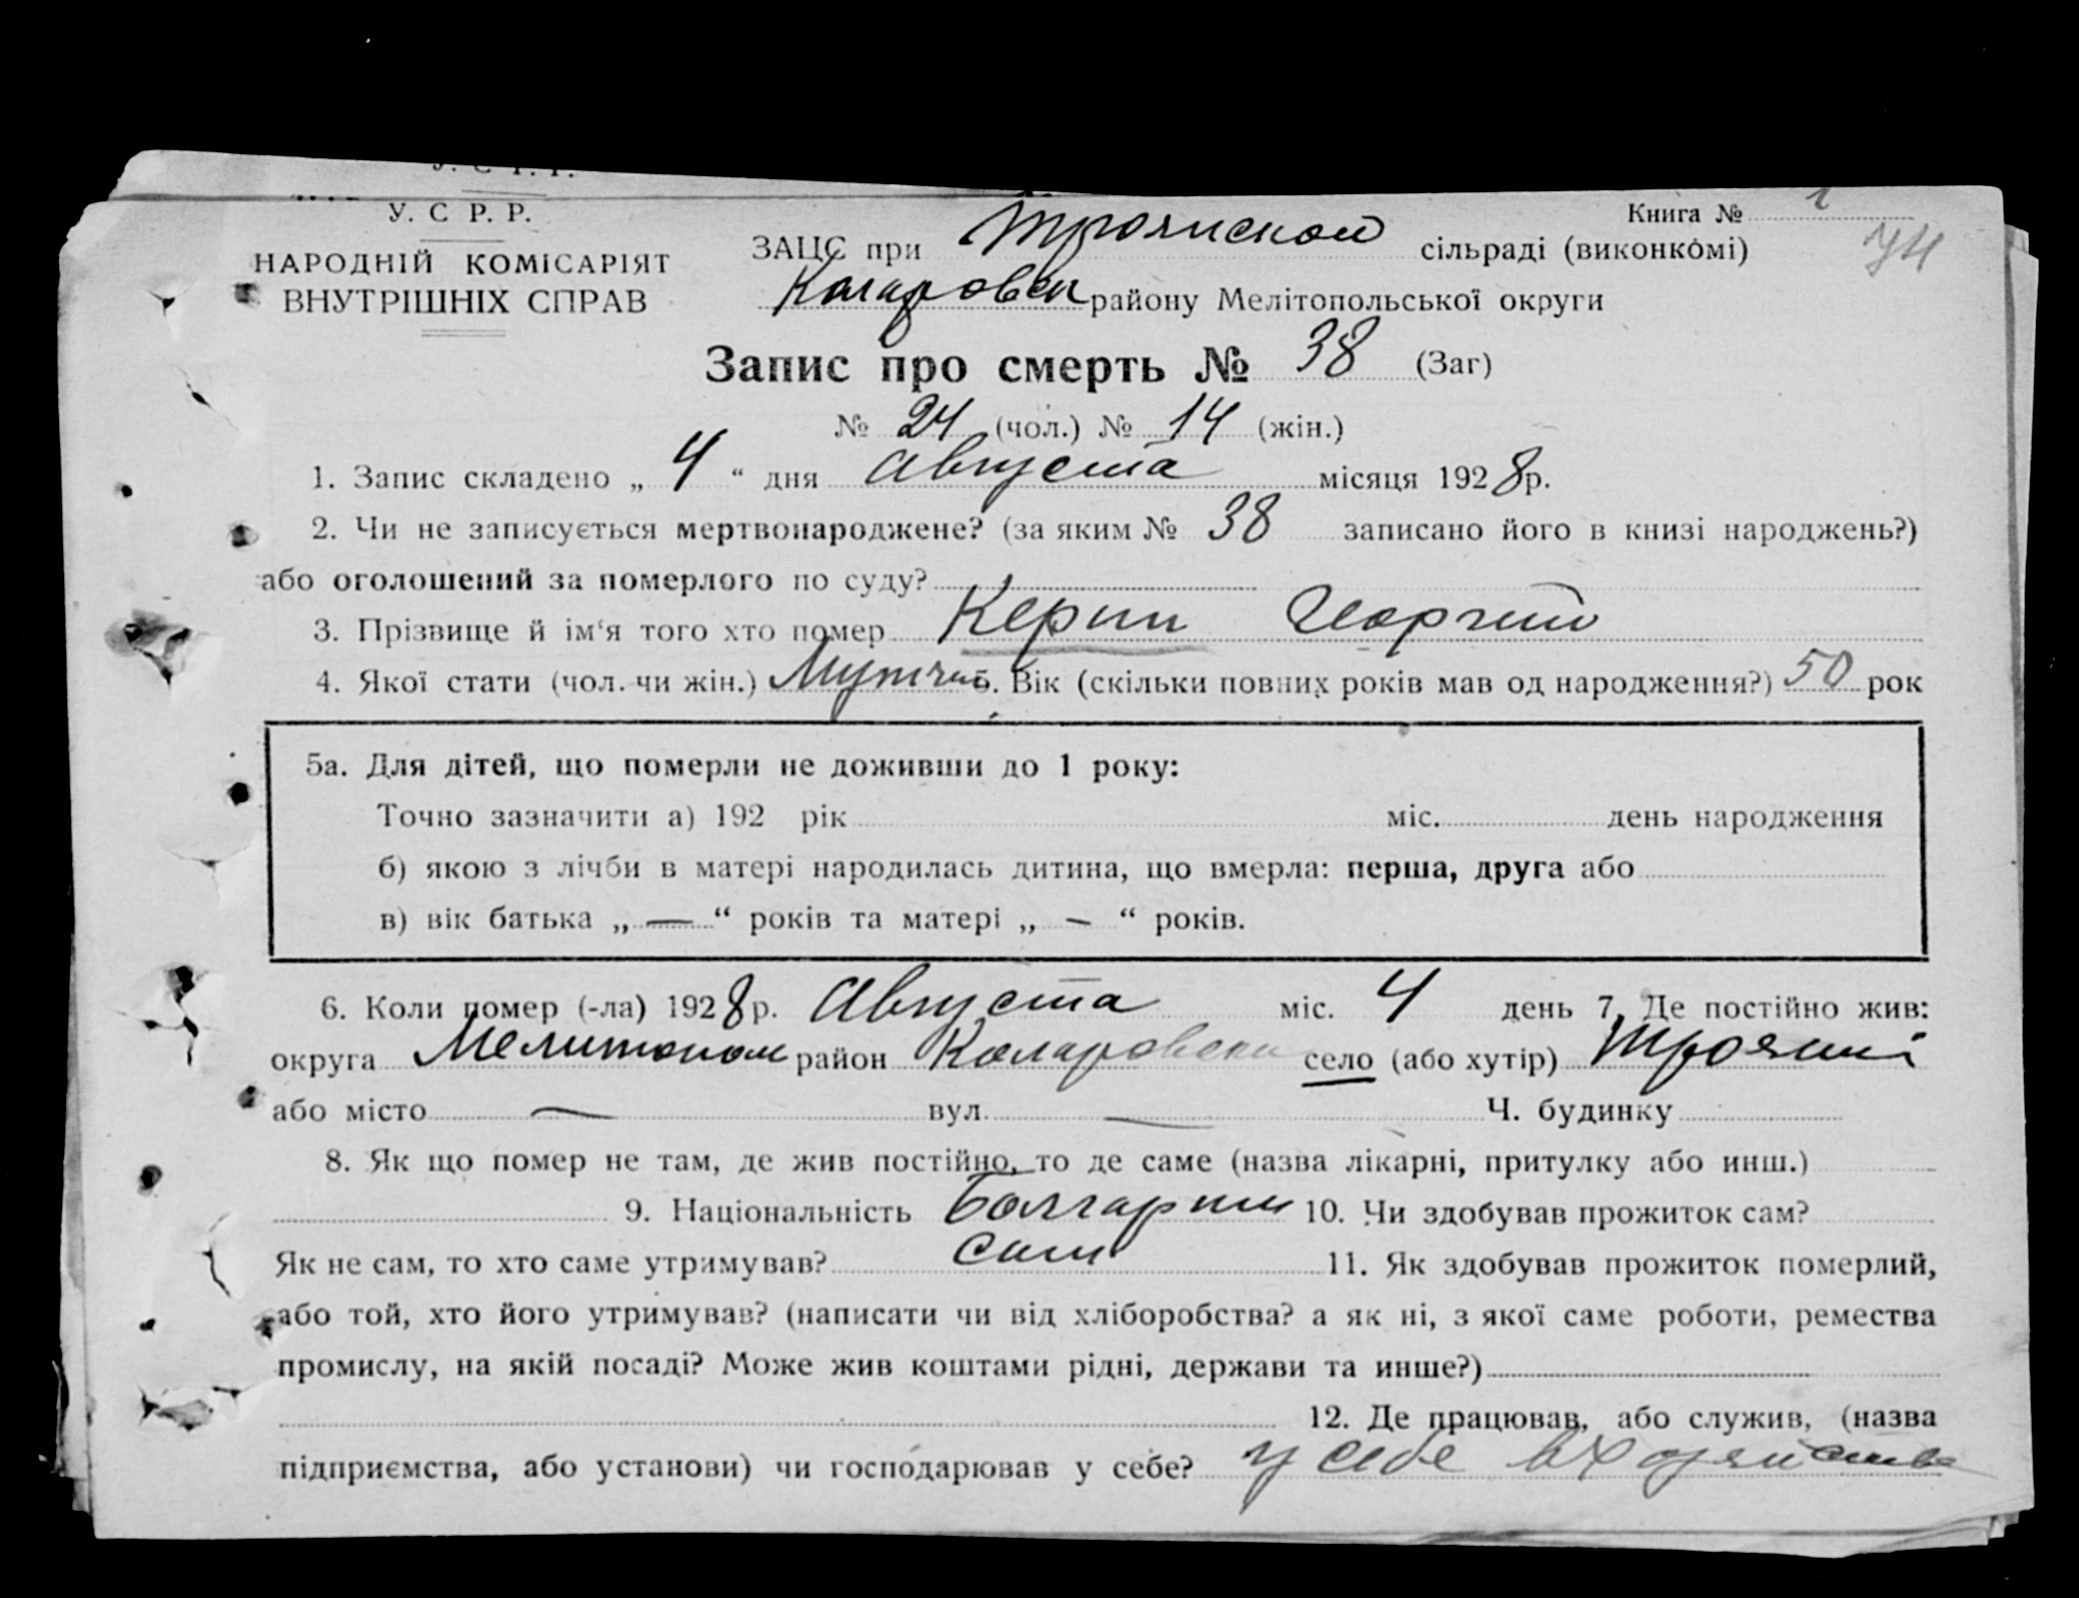 У. С Р. Р.
НАРОДНІЙ КОМІСАРІЯТ
ВНУТРІШНІХ СПРАВ
Книга № 1
74
ЗАЦС при Троянской сільраді (виконкомі)
Коларовск району Мелітопольської округи
Запис про смерть № 38 (Заг)
№ 24 (чол.) № 14 (жін.)
1. Запис складено „ 4 “ дня Августа місяця 1928р.
2. Чи не записується мертвонароджене? (за яким № 38 записано його в книзі народжень?)
або оголошений за померлого по суду?
3. Прізвище й ім‘я того хто помер Керин Георгий
4. Якої стати (чол. чи жін.) 5. Вік (скільки повних років мав од народження?) 50 рок
5а. Для дітей, що померли не доживши до 1 року:
Точно зазначити а) 192 рік міс. день народження
б) якою з лічби в матері народилась дитина, що вмерла: перша, друга або
в) вік батька „ — “ років та матері „ — “ років.
6. Коли помер (-ла) 1928р. Августа міс. 4 день 7. Де постійно жив:
округа Мелитопол район Коларовски село (або хутір) Трояни
або місто — вул. — Ч. будинку
8. Як що помер не там, де жив постійно, то де саме (назва лікарні, притулку або инш.)
9. Національність Болгарин 10. Чи здобував прожиток сам?
Як не сам, то хто саме утримував? Сам 11. Як здобував прожиток померлий,
або той, хто його утримував? (написати чи від хліборобства? а як ні, з якої саме роботи, ремества
промислу, на якій посаді? Може жив коштами рідні, держави та инше?)
12. Де працював, або служив, (назва
підприємства, або установи) чи господарював у себе? у себе в хозяйстве